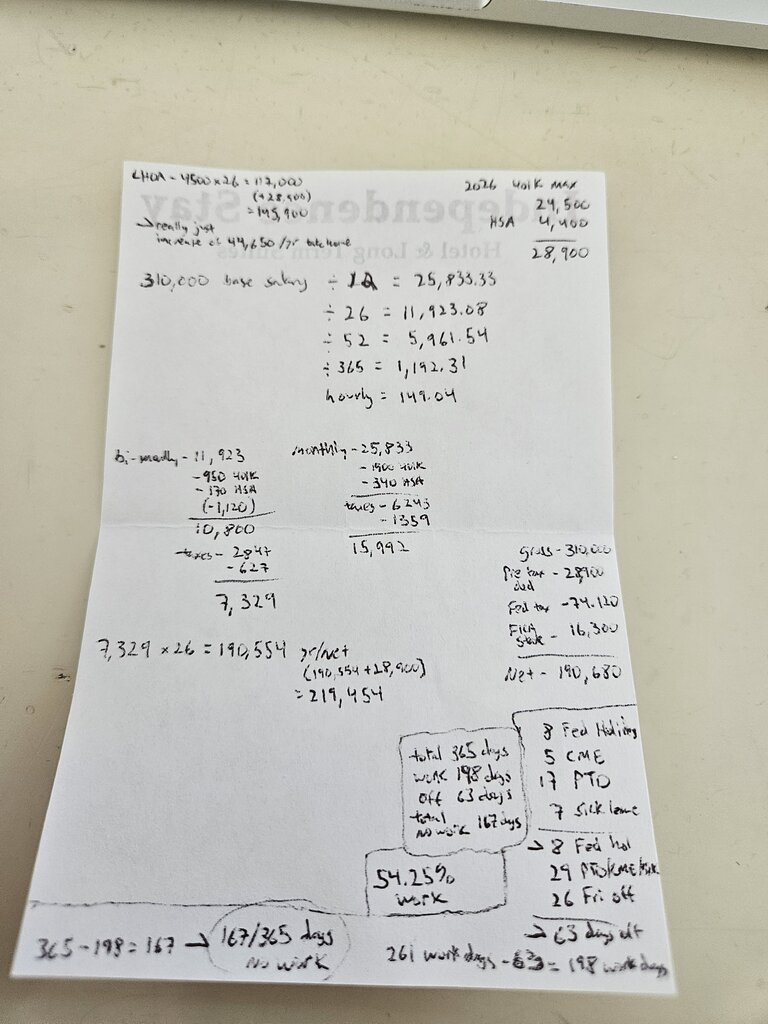 LHOA - 4500 x 26 = 117,000
(+28,900)
= 145,900
→ really just
increase of 44,650 /yr take home
2026 401K max
24,500
HSA 4,400
28,900
310,000 base salary ÷ 12 = 25,833.33
÷ 26 = 11,923.08
÷ 52 = 5,961.54
÷ 365 = 1,192.31
hourly = 149.04
11,923
- 950 401K
- 170 HSA
(-1,120)
10,800
taxes - 2847
- 627
7,329
monthly - 25,833
- 1900 401K
- 340 HSA
taxes - 6243
- 1359
15,992
Gross - 310,000
Pre tax - 28,900
ded
Fed tax - 74,120
FICA - 16,300
State
Net - 190,680
7,329 x 26 = 190,554 yr/net
(190,554 + 28,900)
= 219,454
total 365 days
work 198 days
off 63 days
total
no work 167 days
8 Fed Holiday
5 CME
17 PTO
7 Sick leave
→ 8 Fed hol
29 PTO/CME/Sick
26 Fri off
→ 63 days off
54.25%
work
365 - 198 = 167 → 167/365 days
no work
261 work days - 63 = 198 work days
Independent Stay
Hotel & Long Term Suites